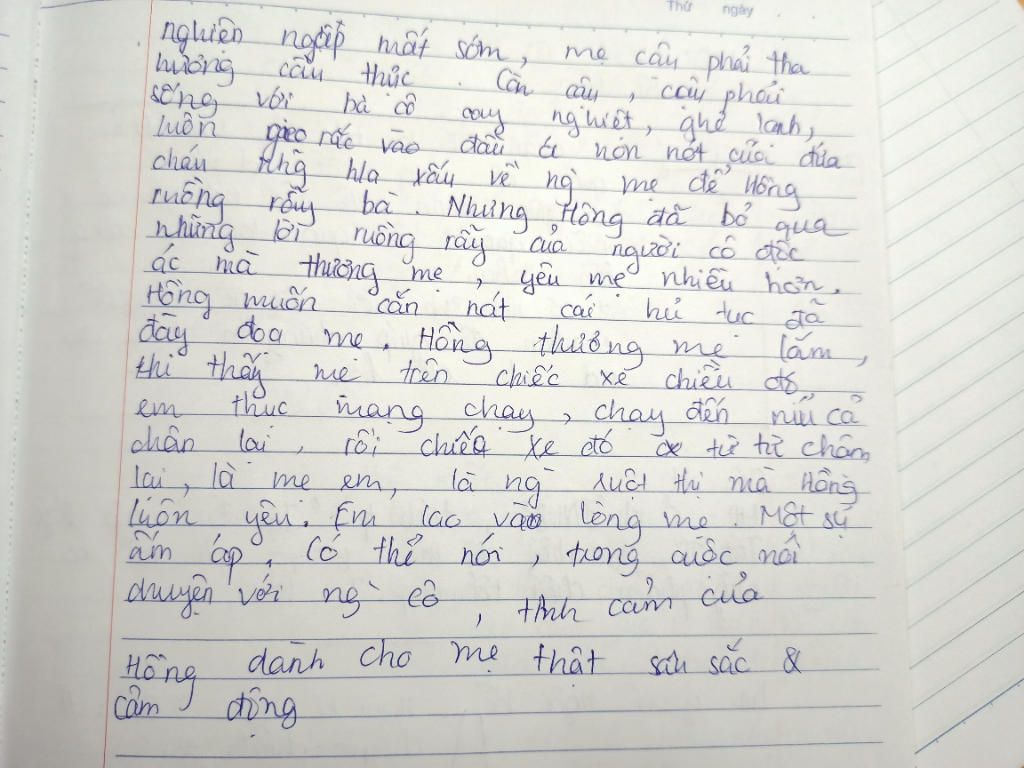 Thứ ngày
nghiện ngập mất sớm, mẹ cậu phải tha
hương cầu thực. Còn cậu, cậu phải
sống với bà cô cay nghiệt, ghẻ lạnh,
luôn gieo rắc vào đầu óc non nớt của đứa
cháu những xấu về ng mẹ để Hồng
ruồng rẫy bà. Nhưng Hồng đã bỏ qua
những lời ruồng rẫy của người cô độc
ác mà thương mẹ, yêu mẹ nhiều hơn.
Hồng muốn cắn nát cái hủ tục đã
đày đoạ mẹ. Hồng thương mẹ lắm,
thi thấy mẹ trên chiếc xe chiều đó
em thục mạng chạy, chạy đến níu cả
chân lại, rồi chiếc xe đó từ từ chậm
lại, là mẹ em, là ng ruột thị mà Hồng
luôn yêu. Em lao vào lòng mẹ. Một sự
ấm áp. Có thể nói, trong cuộc nói
chuyện với ng cô, tình cảm của
Hồng dành cho mẹ thật sâu sắc &
cảm động